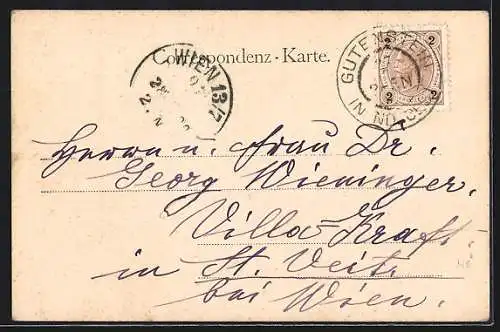 Correspondenz-Karte.
WIEN 13/7
GUTENSTEIN
IN ND. OE.
2 2
2 2
Herrn u. Frau Dr.
Georg Wieninger,
Villa Kraft
in St. Veit
bei Wien.